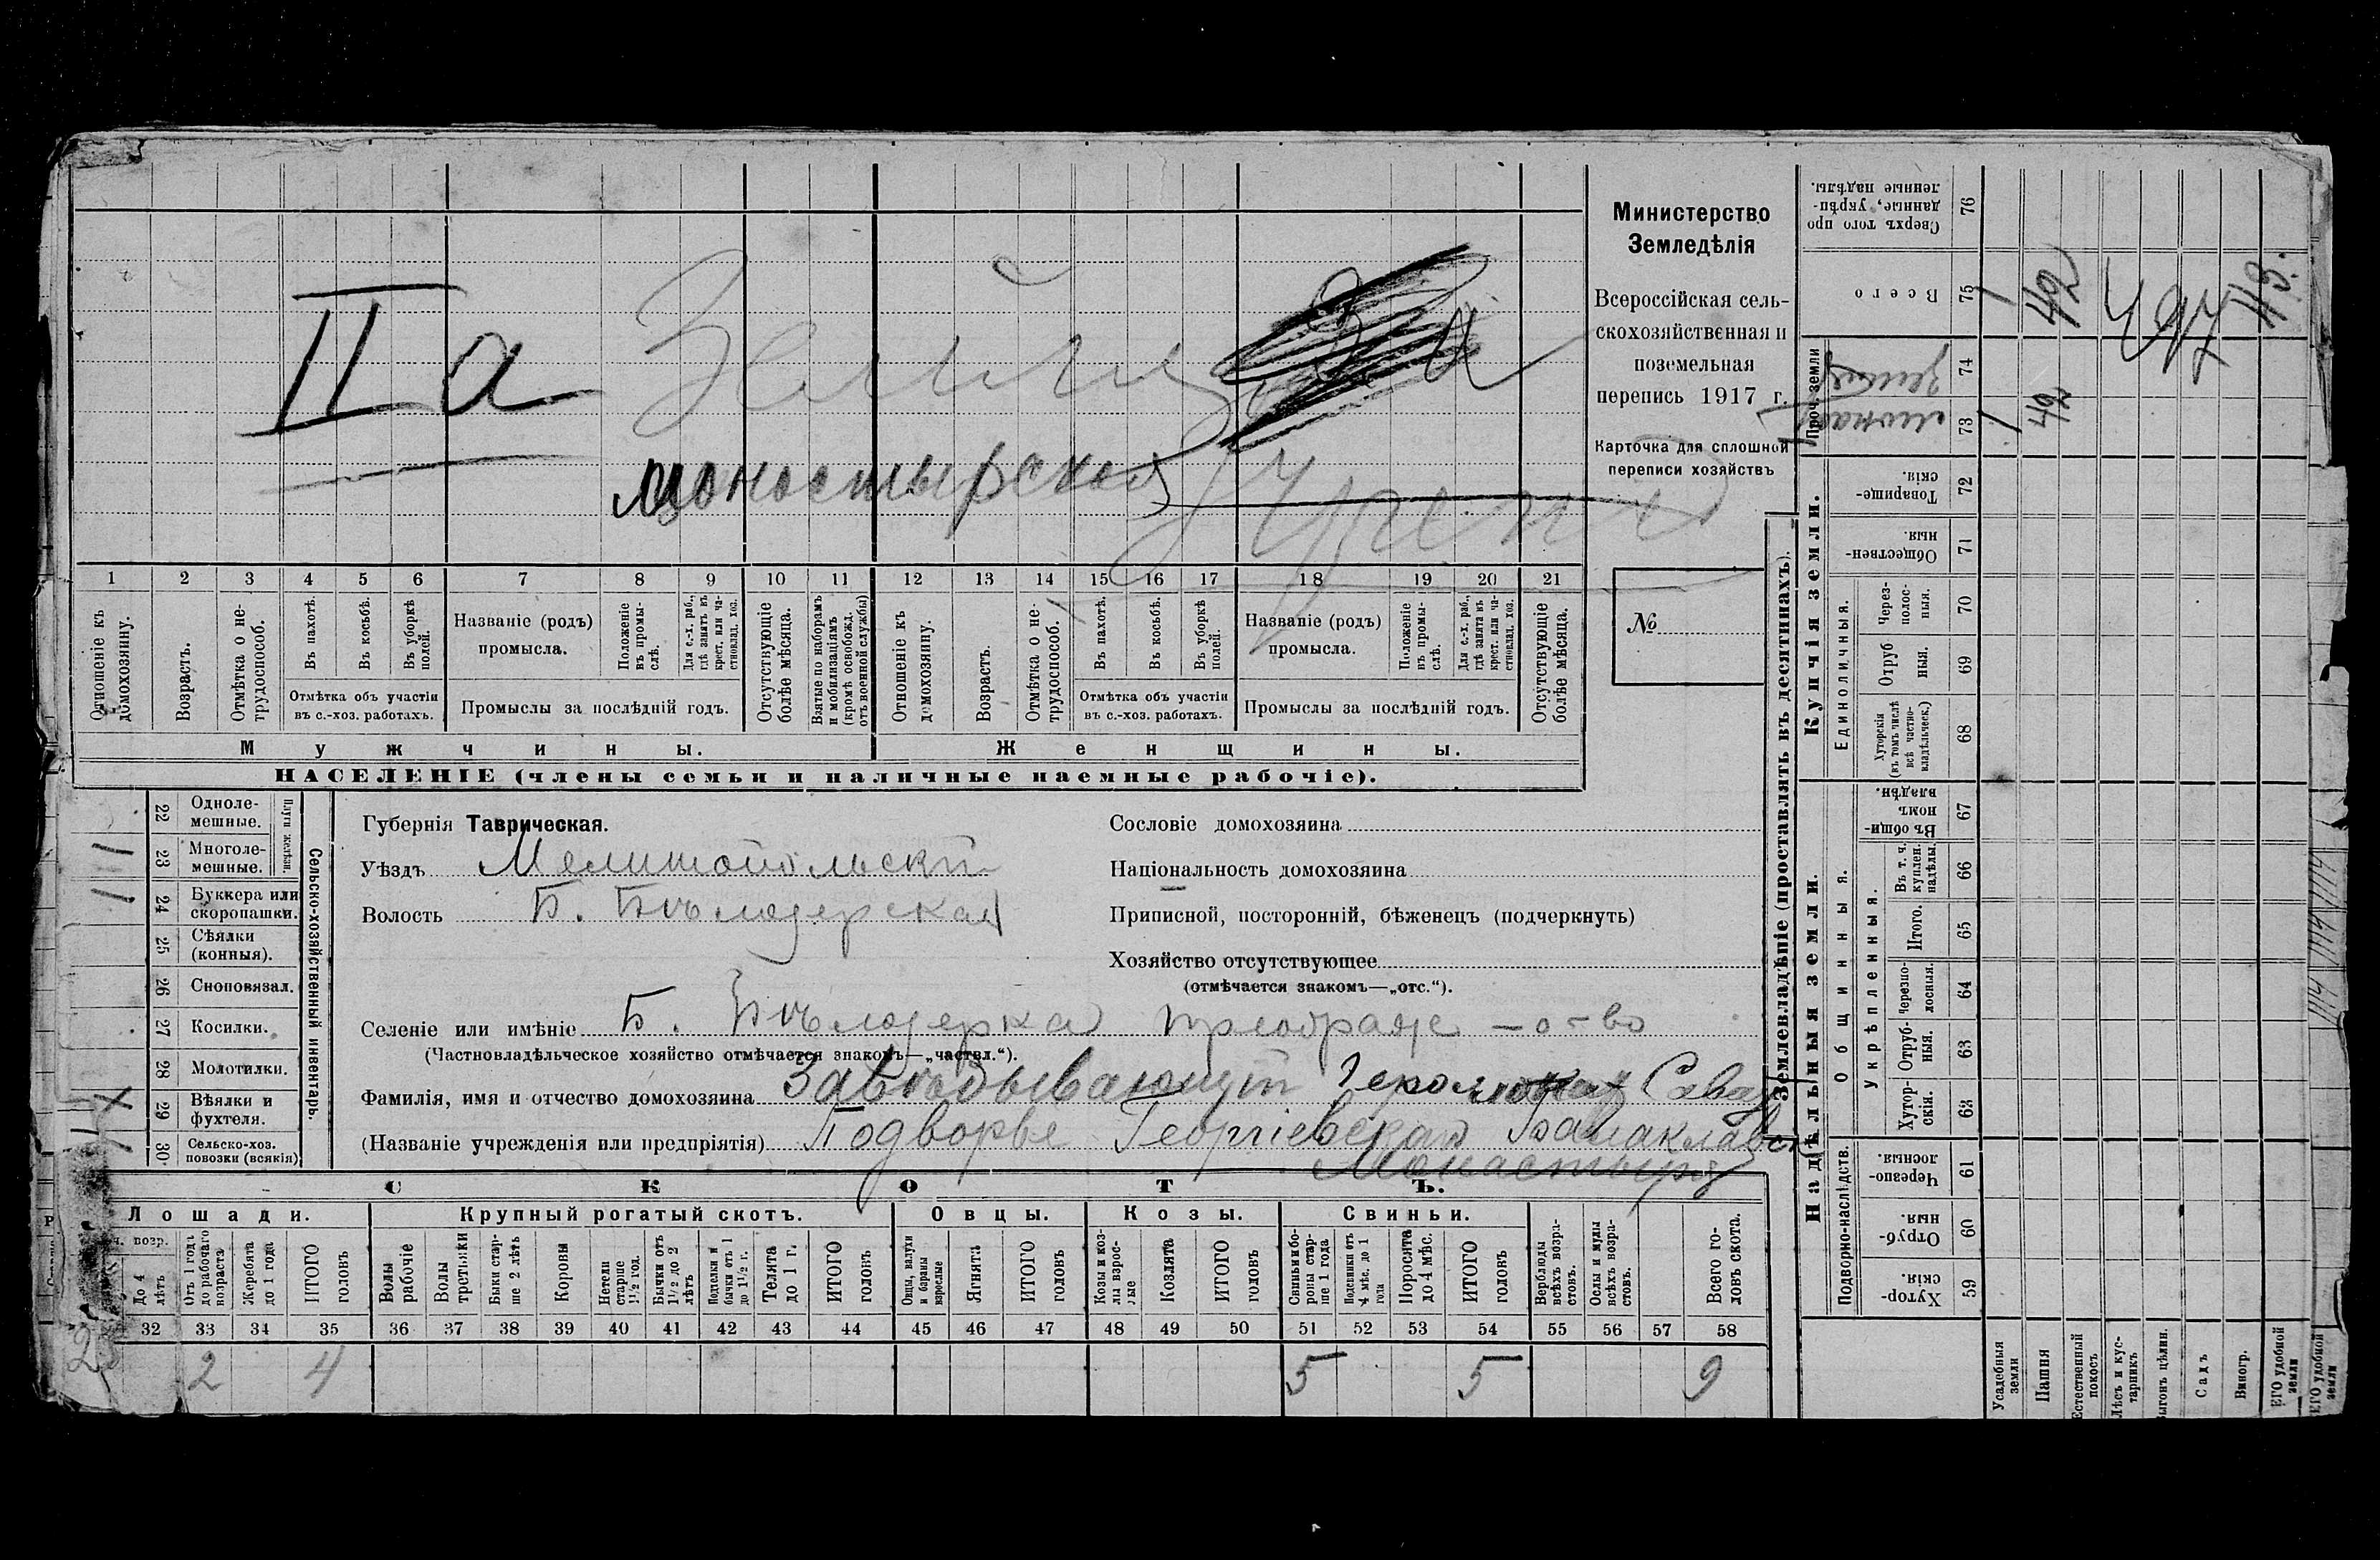 Министерство
Земледѣлія
Всероссійская сель-
скохозяйственная и
поземельная
перепись 1917 г.
Карточка для сплошной
переписи хозяйствъ
№
II а
монастырской
1 2 3 4 5 6 7 8 9 10 11 12 13 14 15 16 17 18 19 20 21
Отношеніе къ домохозяину.
Возрастъ.
Отмѣтка о не-трудоспособ.
Въ пахотѣ.
Въ косьбѣ.
Въ уборкѣ полей.
Отмѣтка объ участіи
въ с.-хоз. работахъ.
Названіе (родъ)
промысла.
Положеніе въ промы-слѣ.
Для с.-х. раб., гдѣ занятъ въ крест. или ча-стновлад. хоз.
Промыслы за послѣдній годъ.
Отсутствующіе болѣе мѣсяца.
Взятые по наборамъ и мобилизаціямъ (кромѣ освобожд. отъ военной службы)
Отношеніе къ домохозяину.
Возрастъ.
Отмѣтка о не-трудоспособ.
Въ пахотѣ.
Въ косьбѣ.
Въ уборкѣ полей.
Отмѣтка объ участіи
въ с.-хоз. работахъ.
Названіе (родъ)
промысла.
Положеніе въ промы-слѣ.
Для с.-х. раб., гдѣ занята въ крест. или ча-стновлад. хоз.
Промыслы за послѣдній годъ.
Отсутствующіе болѣе мѣсяца.
Мужчины.
Женщины.
НАСЕЛЕНІЕ (члены семьи и наличные наемные рабочіе).
Сельско-хозяйственный инвентарь.
Плуги желѣзн.
22 Одноле-мешные.
23 Многоле-мешные.
24 Буккера или скоропашки.
25 Сѣялки (конныя).
26 Сноповязал.
27 Косилки.
28 Молотилки.
29 Вѣялки и фухтеля.
30 Сельско-хоз. повозки (всякія)
Губернія Таврическая.
Уѣздъ Мелитопольскій
Волость Б. Бѣлозерская
Сословіе домохозяина
Національность домохозяина
Приписной, посторонній, бѣженецъ (подчеркнуть)
Хозяйство отсутствующее
(отмѣчается знакомъ—„отс.“).
Селеніе или имѣніе Б. Бѣлозерка
(Частновладѣльческое хозяйство отмѣчается знакомъ—„частвл.“).
Фамилія, имя и отчество домохозяина Завѣдывающій Іеромонах Савва
(Названіе учрежденія или предпріятія) Подворье Георгіевская Балаклавск
Монастыря
СКОТЪ.
Лошади.
Крупный рогатый скотъ.
Овцы.
Козы.
Свиньи.
До 4 лѣтъ
Отъ 1 года до рабочаго возраста
Жеребята до 1 года
ИТОГО головъ
Волы рабочіе
Волы третьяки
Быки стар-ше 2 лѣтъ
Коровы
Нетели старше 1½ год.
Бычки отъ 1½ до 2 лѣтъ
Подтелки и бычки отъ 1 до 1½ г.
Телята до 1 г.
ИТОГО головъ
Овцы, валухи и бараны взрослые
Ягнята
ИТОГО головъ
Козы и коз-лы взрос-лые
Козлята
ИТОГО головъ
Свиньи и бо-ровы стар-ше 1 года
Подсвинки отъ 4 мѣс. до 1 года
Поросята до 4 мѣс.
ИТОГО головъ
Верблюды всѣхъ возра-стовъ.
Ослы и мулы всѣхъ возра-стовъ.
Всего го-ловъ скота.
32 33 34 35 36 37 38 39 40 41 42 43 44 45 46 47 48 49 50 51 52 53 54 55 56 57 58
2 2 4 5 5 9
Землевладѣніе (проставлять въ десятинахъ).
Надѣльныя земли.
Купчія земли.
Проч. земли
Подворно-наслѣдств.
Общинныя.
Укрѣпленныя.
Единоличныя.
Хутор-скія. 59
Отруб-ныя. 60
Черезпо-лосныя. 61
Хутор-скія. 62
Отруб-ныя. 63
Черезпо-лосныя. 64
Итого. 65
Въ т. ч. куплен. надѣлы. 66
Въ общи-номъ владѣн. 67
Хуторскія (въ томъ числѣ всѣ частно-владѣльческ.) 68
Отруб ныя. 69
Через-полос-ныя. 70
Обществен-ныя. 71
Товарище-скія. 72
73
74
Всего 75
Сверхъ того про данные, укрѣп-ленные надѣлы. 76
Усадебныя земли
Пашня
Естественный покосъ
Лѣсъ и кус-тарникъ
Выгонъ цѣлин.
Садъ
Виногр.
ЕГО удобной земли
1 42
1 42
43.